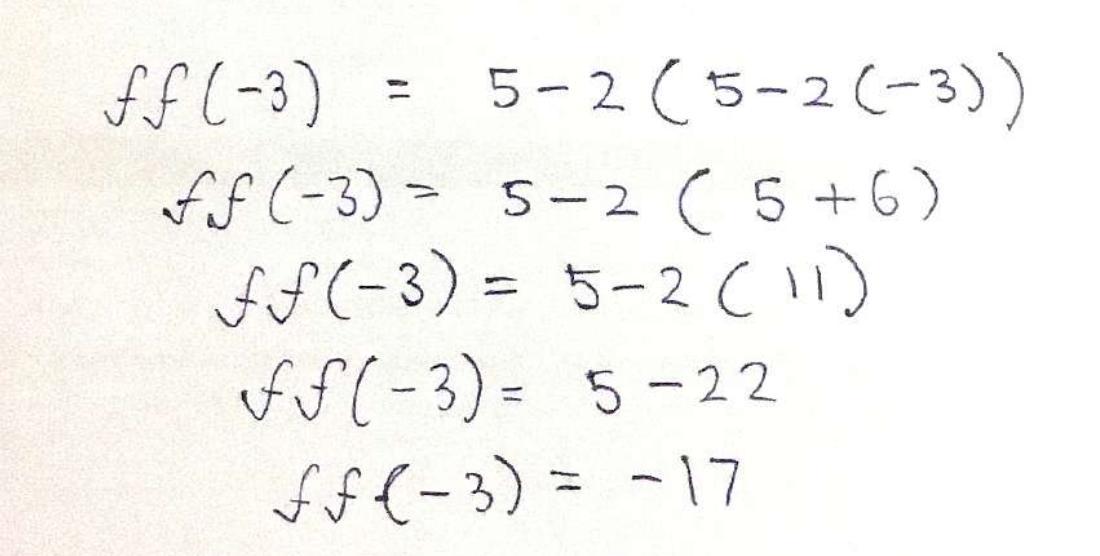 ff(-3) = 5-2(5-2(-3))
ff(-3) = 5-2(5+6)
ff(-3) = 5-2(11)
ff(-3) = 5-22
ff(-3) = -17